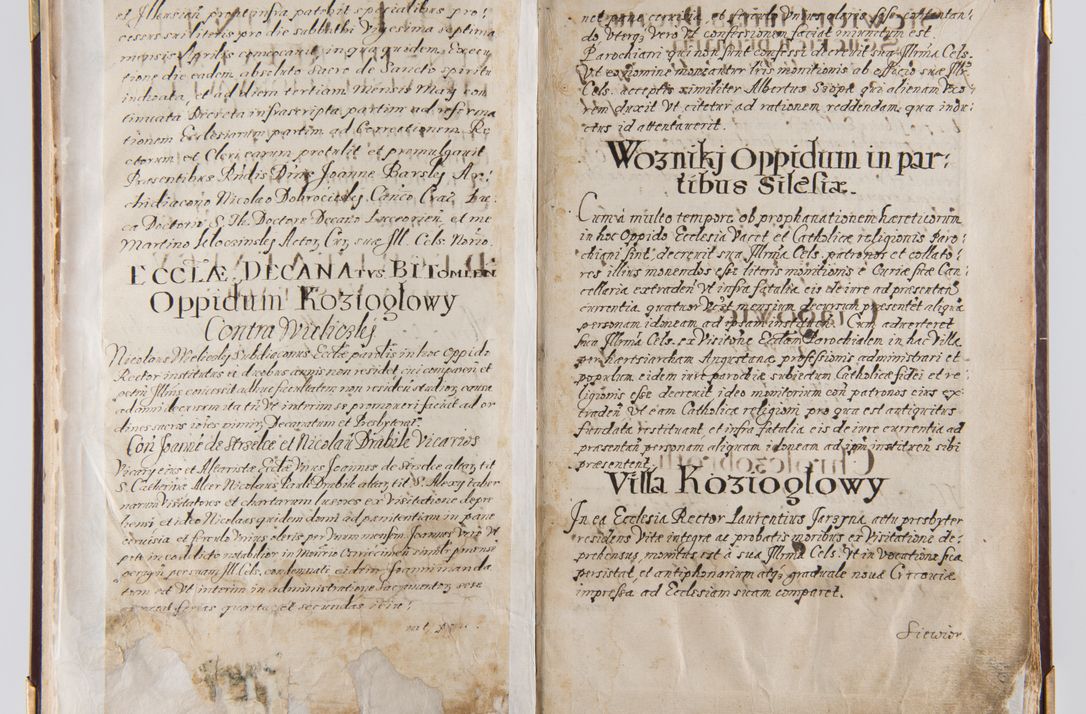 et Illustri propt infra patebit specialibus pro:
cessus sui literis pro die sublthi Vigesima septima
mensis Aprilis convocavit, in qua quidem Execu
tione die eadem absoluto Sacro de Sancto spiritu
inchoata, et ad diem tertiam Mensis Maij con
tinuata Decreta infrascripta partim ad reforma
tionem Ecclesiarum partim ad Correctionem Re
ctorum et Clericorum protulit et promulgavit
Præsentibus Rndis Dnis Joanne Barsky Ar:
chidiacono Nicolao Dobrocieski Canco Crac
Doctore S. Th. Doctore Decano et me
Martino Actor, Cur, suæ Ill. Cels. Norio.
ECCLÆ DECANATVS BITOMIEN
Oppidum Koziogłowy
Contra Wieliczky
Nicolaus Wieliczky Subdiaconus Ecclæ parslis in hoc oppido
Rector institutus et duobus annis non residet cui comparen et
petni Illmus concessit adhuc facultatem non residen studior, causa
ad anni decursum ita tn Vt interim se promoveri faciat ad or
dines sacros
Con Joanne de Strzelce et Nicolau Drabik Vicarios
Vicary eius et Altaristæ Ecclæ Joannes de Strzelce altar, tit
S. Catherinæ Alter Nicolaus Drabik altar, tit S. Alexy taber
narum Visitatores et chartarum lusores ex Visitatione depre
hensi et ideo Nicolaus quidem domi ad pænitentiam in pane
cervisia et ferculo Unius oleris per Unum mensem Joannes Vero Vt
pote in
personam Ill. Cels. condemnati eidem Joanni manda
tum est Vt interim in administratione sacramentor, sese
ferias quarta, et secundas
net pane cervisia et ferculo Unius oleris sese
do Uterq, Vero Vt confessionem faciat iniunctum est.
Parochiani qui non sunt confessi decrevit sua Illrma Cels.
Vt ex nomine moneantur tris monitionis ab officio suæ Illr
Cels. acceptis similiter Albertus qui alienam Vxo
rem duxit Vt citetur ad rationem reddendam qua indu
ctus id attentaverit.
Wozniki Oppidum in par:
tibus Silesiæ.
Cum à multo tempore ob prophanationem hæreticorum
in hoc Oppido Ecclesia Vacet et Catholicæ religionis Paro:
chiani sint, decrevit sua Illrma Cels. patronos et collato:
res illius monendos esse literis monitionis è Curiæ suæ Can
cellaria extraden Vt infra fatalia eis de iure ad præsentan
currentia quatuor Vt mensium decursu præsentet aliqua
personam idoneam ad ipsam instituen. Cum adverteret
sua Illrma Cels. ex Visitone Ecclam Parochialem in hac Villa
per hæresiarcham Augustanæ professionis administrari et
populum eidem iure parochiæ subiectum Catholicæ fidei et re
ligionis esse decrevit ideo monitorium con patronos eius ex
traden Vt eam Catholicæ religioni pro qua est antiquitus
fundata restituant et infra fatalia eis de iure currentia ad
præsentan personam aliquam idoneam ad ipm institven sibi
præsentent.
Villa Koziogłowy
In ea Ecclesia Rector Laurentius Jarzyna actu presbyter
residens Vitæ integræ ac probatis moribus ex Visitatione de:
prehensus, monitus est à sua Illrma Cels. Vt in Vocatione sua
persistat, et antiphonarium atq, graduale novæ Cracoviæ
impressa ad Ecclesiam suam comparet.
Siewior.